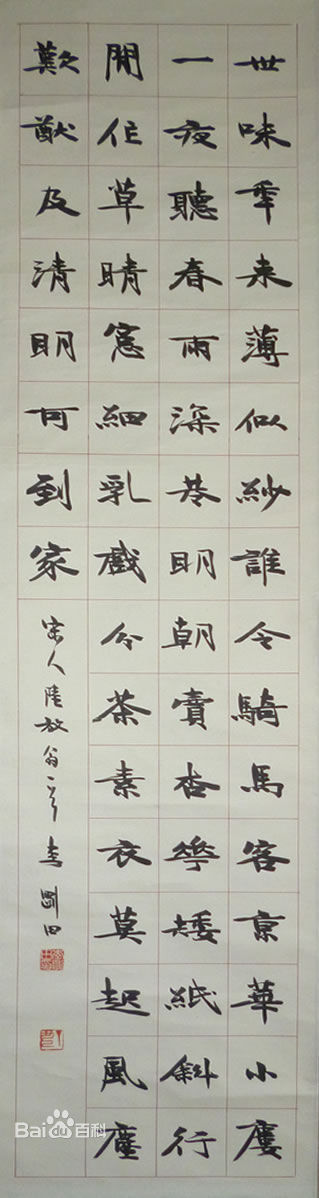 世味年来薄似紗誰令騎馬客京華小廔
一夜聽春雨深巷明朝賣杏花矮紙斜行
閒作草晴窓細乳戲分茶素衣莫起風塵
歎猶及清明可到家
宋人陸放翁一首 李剛田
Bai百科